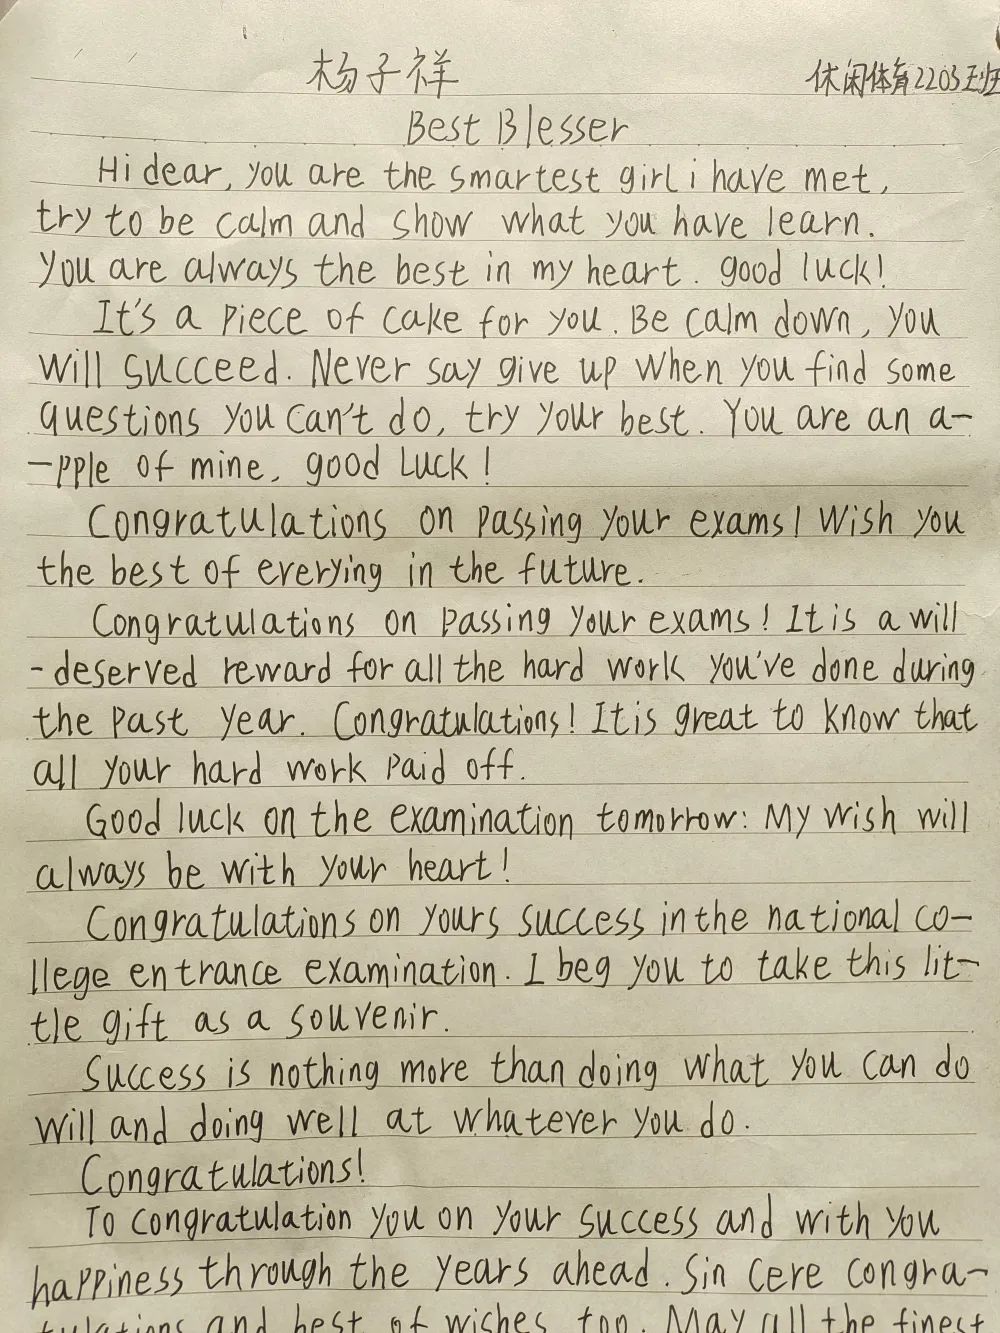 杨子祥
休闲体育2203班
Best Blesser
Hi dear, you are the smartest girl i have met,
try to be calm and show what you have learn.
You are always the best in my heart. good luck!
It's a piece of cake for you. Be calm down, you
will succeed. Never say give up when you find some
questions you can't do, try your best. You are an a-
-pple of mine, good luck!
Congratulations on passing your exams! Wish you
the best of everying in the future.
Congratulations on passing your exams! It is a will
-deserved reward for all the hard work you've done during
the past year. Congratulations! It is great to know that
all your hard work paid off.
Good luck on the examination tomorrow: My wish will
always be with your heart!
Congratulations on yours success in the national co-
llege entrance examination. I beg you to take this lit-
tle gift as a souvenir.
Success is nothing more than doing what you can do
will and doing well at whatever you do.
Congratulations!
To congratulation you on your success and with you
happiness through the years ahead. Sin cere congra-
tulations and best of wishes too. May all the finest